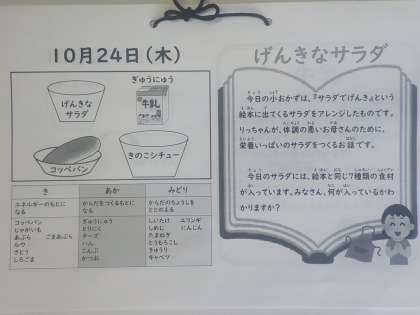 10月24日(木)
げんきなサラダ
ぎゅうにゅう
牛乳
コッペパン
きのこシチュー
き
エネルギーのもとに
なる
コッペパン
じゃがいも
あぶら　ごまあぶら
ルウ
さとう
しろごま
あか
からだをつくるもとに
なる
ぎゅうにゅう
とりにく
チーズ
ハム
こんぶ
かつお
みどり
からだのちょうしを
ととのえる
しいたけ　エリンギ
しめじ　にんじん
たまねぎ
とうもろこし
きゅうり
キャベツ
げんきなサラダ
今日の小おかずは、『サラダでげんき』という
絵本に出てくるサラダをアレンジしたものです。
りっちゃんが、体調の悪いお母さんのために、
栄養いっぱいのサラダをつくるお話です。
今日のサラダには、絵本と同じ7種類の食材
が入っています。みなさん、何が入っているかわ
かりますか?